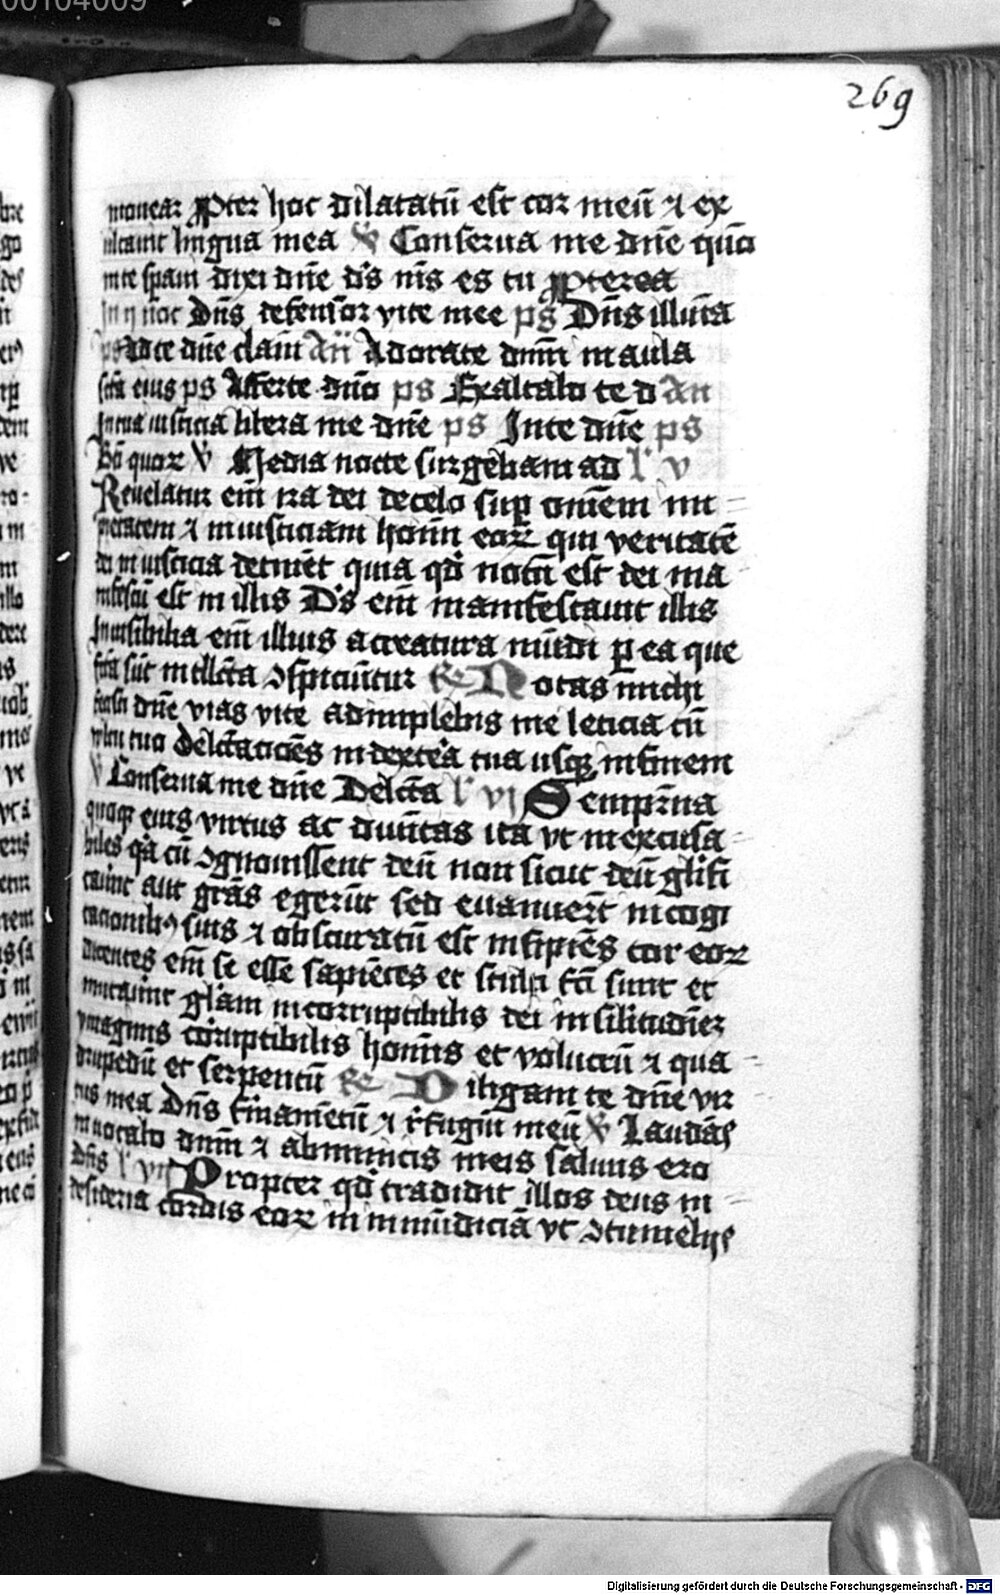 00104009
269
mouear ꝓpter hoc dilatatū est cor meū ⁊ ex
ultauit lingua mea ℣ Conserua me dn̄e qm̄
in te spaui dixi dn̄e ds̄ ms̄ es tu ꝓpterea
In ij noc Dn̄s defensor vite mee ps Dn̄s illuīa
ps Ad te dn̄e clam̄ An̄ Adorate dn̄m in aula
sc̄a eius ps Afferte dn̄o ps Exaltabo te d An
In tua iusticia libera me dn̄e ps In te dn̄e ps
Bt̄i quorꝝ ℣ Media nocte surgebam ad l v
Reuelatur em̄ ira dei de celo suꝑ om̄em im
pietatem ⁊ iniusticiam hom̄n eorꝝ qui veritatē
dei in iusticia detinēt quia qd̄ notū est dei ma
nifestū est in illis Ds̄ em̄ manifestauit illis
Inuisibilia em̄ illius a creatura mūdi ꝑ ea que
fc̄a sūt intellcā ꝯspiciūtur ℟ Notas michi
fecisti dn̄e vias vite adimplebis me leticia cū
vultu tuo delcātiōēs in dextera tua usqꝫ in finem
℣ Conserua me dn̄e Delcā l vj Semprn̄a
quoqꝫ eius virtus ac diuītas ita vt inexcusa
biles qꝛ cū ꝯgnouissent deū non sicut deū glifi
cauūt aut grās egerūt sed euanuerūt in cogi
tacionibꝰ suis ⁊ obscuratū est insipiēs cor eorꝝ
dicentes em̄ se esse sapiētes et stulti fc̄i sunt et
mutauūt glām incorruptibilis dei in silitudinē
ymaginis coruptibilis homīs et volucrū ⁊ qua
drupedū et serpentū ℟ Diligam te dn̄e vir
tus mea Dn̄s firmamētū ⁊ refugiū meū ℣ Laudās
inuocabo dnm̄ ⁊ ab inimicis meis saluus ero
Dn̄s l vij Propter qd̄ tradidit illos deus in
desideria cordis eorꝝ in inmūdiciā vt ꝯtumelijs
Digitalisierung gefördert durch die Deutsche Forschungsgemeinschaft - DFG